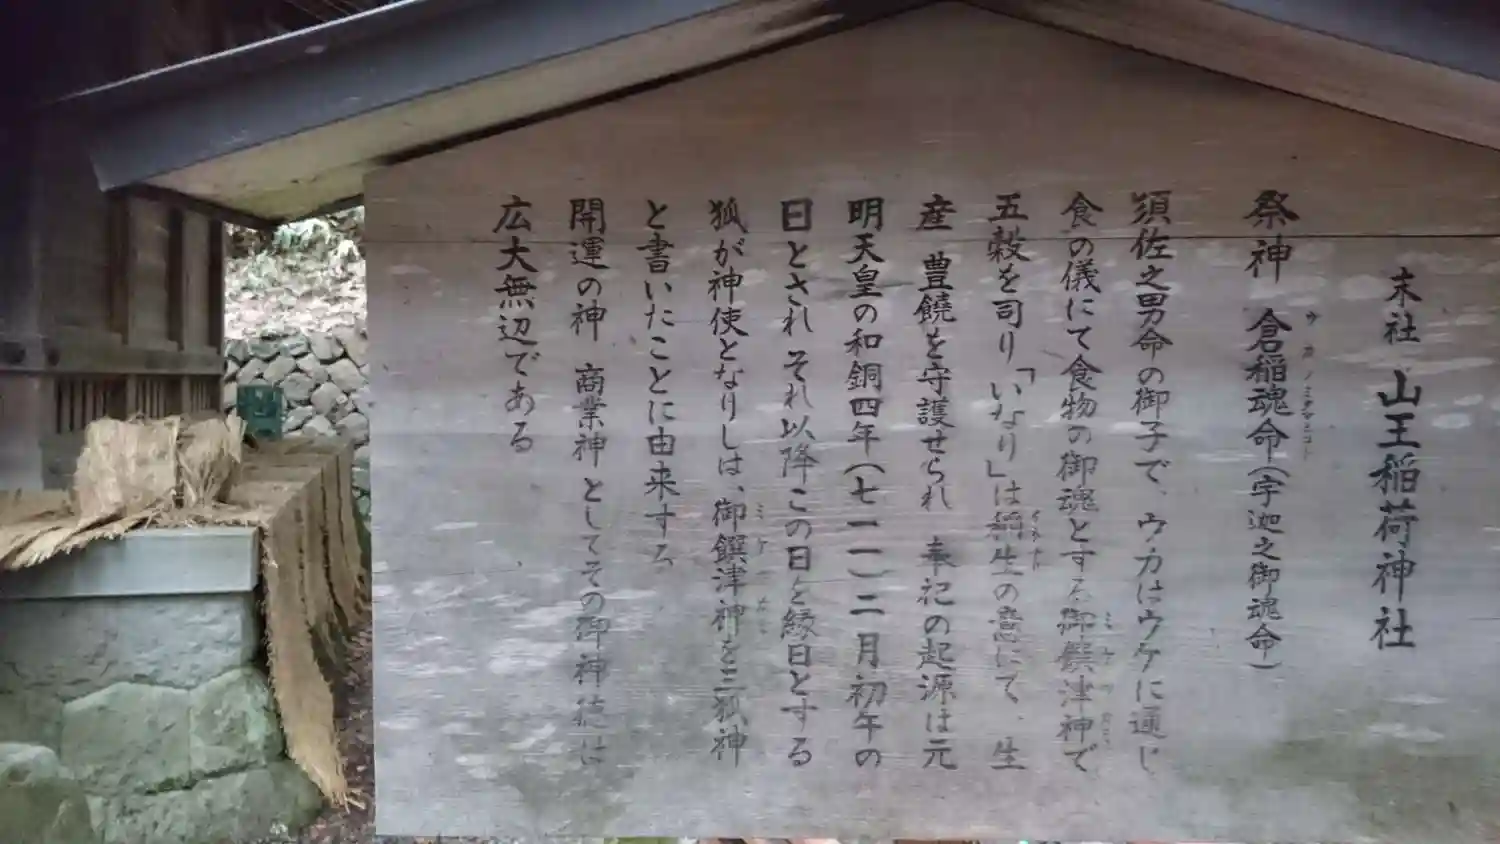 末社 山王稲荷神社
祭神 倉稲魂命(宇迦之御魂命)
ウカノミタマノミコト
須佐之男命の御子で、ウカはウケに通じ
食の儀にて食物の御魂とする御饌津神で
ミケツカミ
五穀を司り「いなり」は稲生の意にて、生
イネナリ
産 豊饒を守護せられ 奉祀の起源は元
明天皇の和銅四年(七一一)二月初午の
日とされ それ以降この日を縁日とする
狐が神使となりしは、御饌津神を三狐神
ミケツカミ
と書いたことに由来する
開運の神 商業神としてその御神徳は
広大無辺である